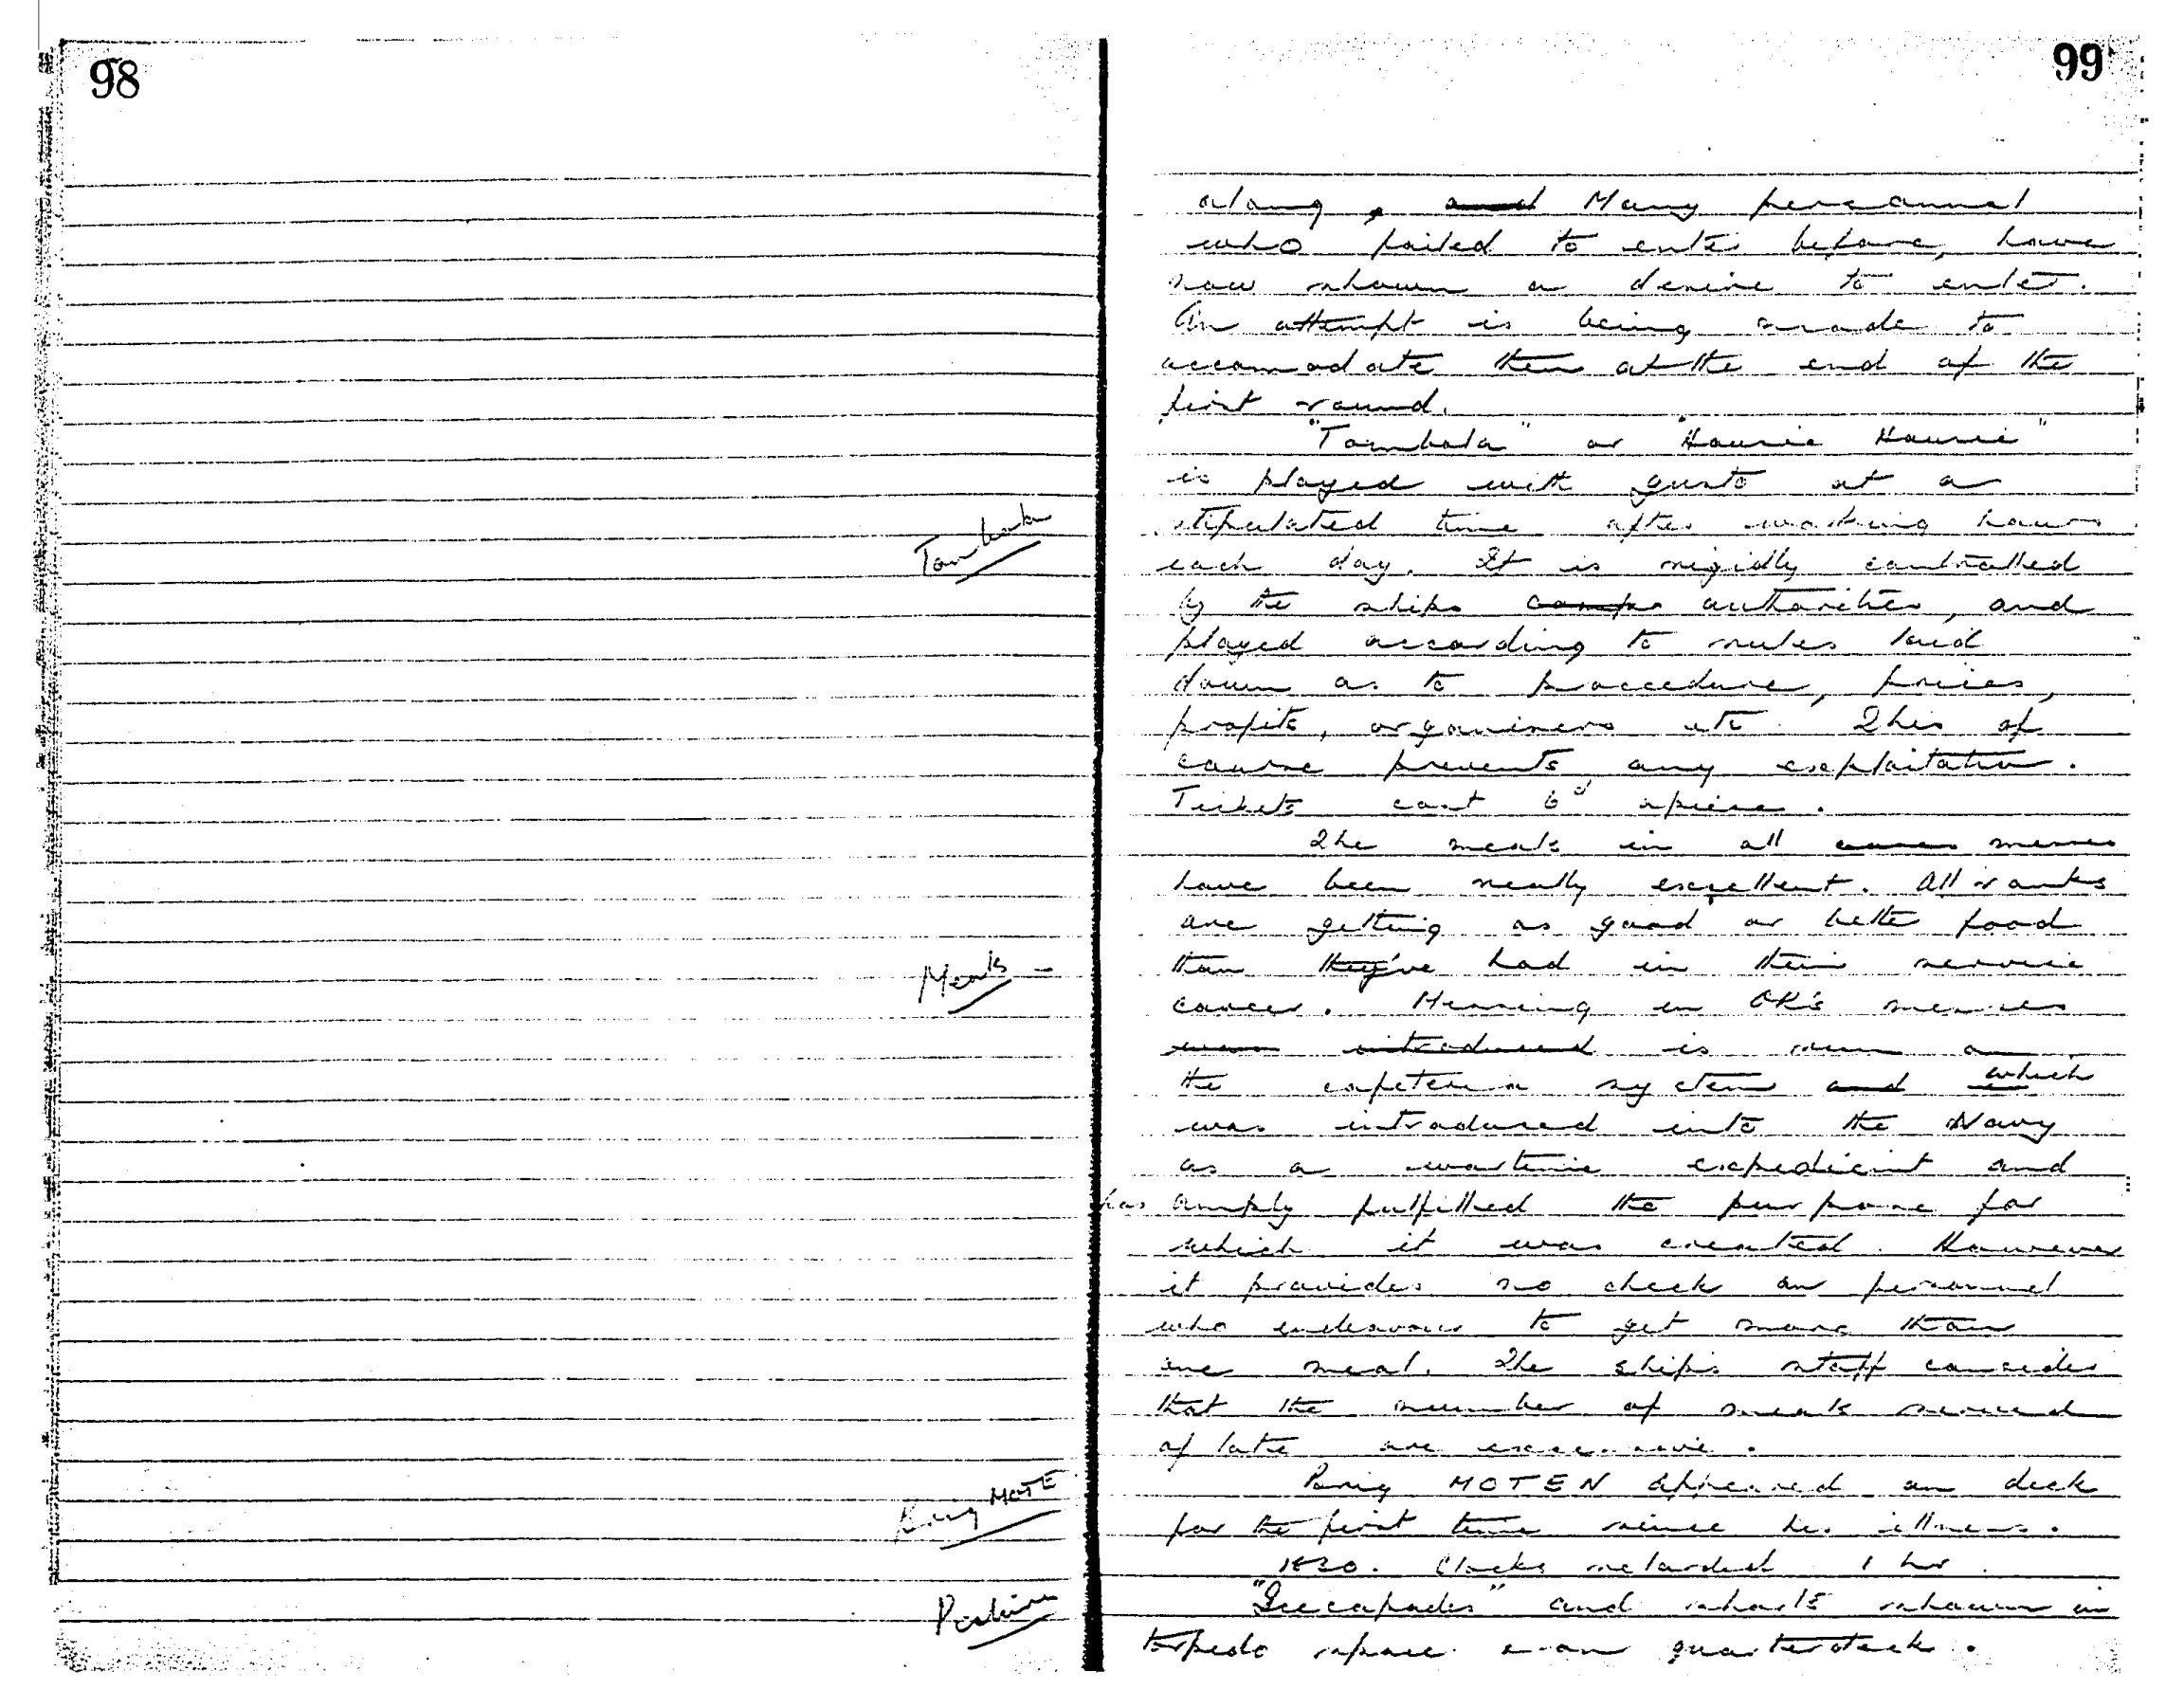 98
Tombola
Meals -
Brig MOTE
99
along, and Many personnel
who failed to enter before, have
now shown a desire to enter.
An attempt is being made to
accomodate them at the end of the
first round.
"Tombola" or "Housie Housie"
is played with gusto at a
stipulated time after working hours
each day. It is rigidly controlled
by the ships comps authorities, and
played according to rules laid
down as to proccedure, prices,
profits, organisers etc. This of
course prevents any exploitation.
Tickets cost 6d apiece.
The meals in all messes
have been really excellent. All ranks
are getting as good or better food
than they've had in their service
career. Messing in OR's messes
was introduced is run on
the cafeteria system and which
was introduced into the Navy
as a wartime expedient and
has amply fulfilled the purpose for
which it was created. However
it provides no check on personnel
who endeavour to get more than
one meal. The ship's staff consider
that the number of meals served
of late are excessive.
Brig MOTEN appeared on deck
for the first time since his illness.
1830. Clocks retarded 1 hr.
"Icecapades" and shorts shown in
torpedo space & on quarterdeck.